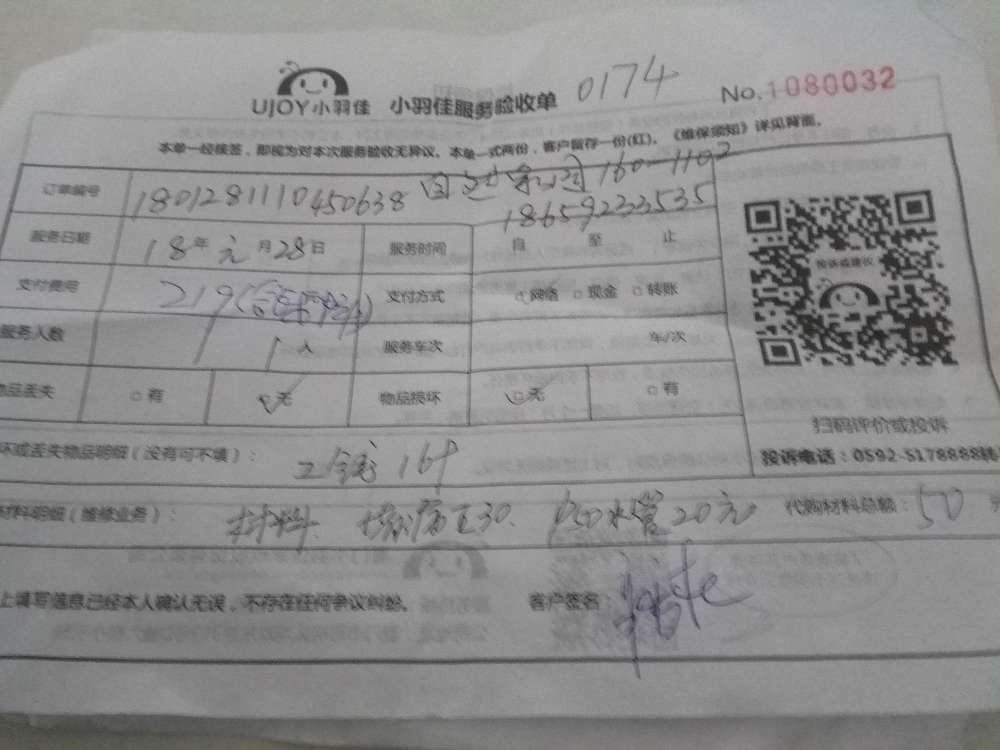 UJOY小羽佳 小羽佳服务验收单 0174 No.1080032
本单一经核签,即视为对本次服务验收无异议。本单一式两份,客户留存一份(红)。《维保须知》详见背面。
订单编号 18012811110450638 160-1102
18659233535
服务日期 18年元月28日 服务时间 自 至 止
支付费用 219 支付方式 □网络 □现金 □转账
服务人数 1人 服务车次 车/次
物品丢失 □有 □无 物品损坏 □无 □有
投诉或建议
扫码评价或投诉
投诉电话:0592-5178888转
坏或丢失物品明细(没有可不填): 工钱169
材料明细(维修业务): 材料 30. 水管20元 代购材料总额:50元
上填写信息已经本人确认无误,不存在任何争议纠纷。 客户签名: